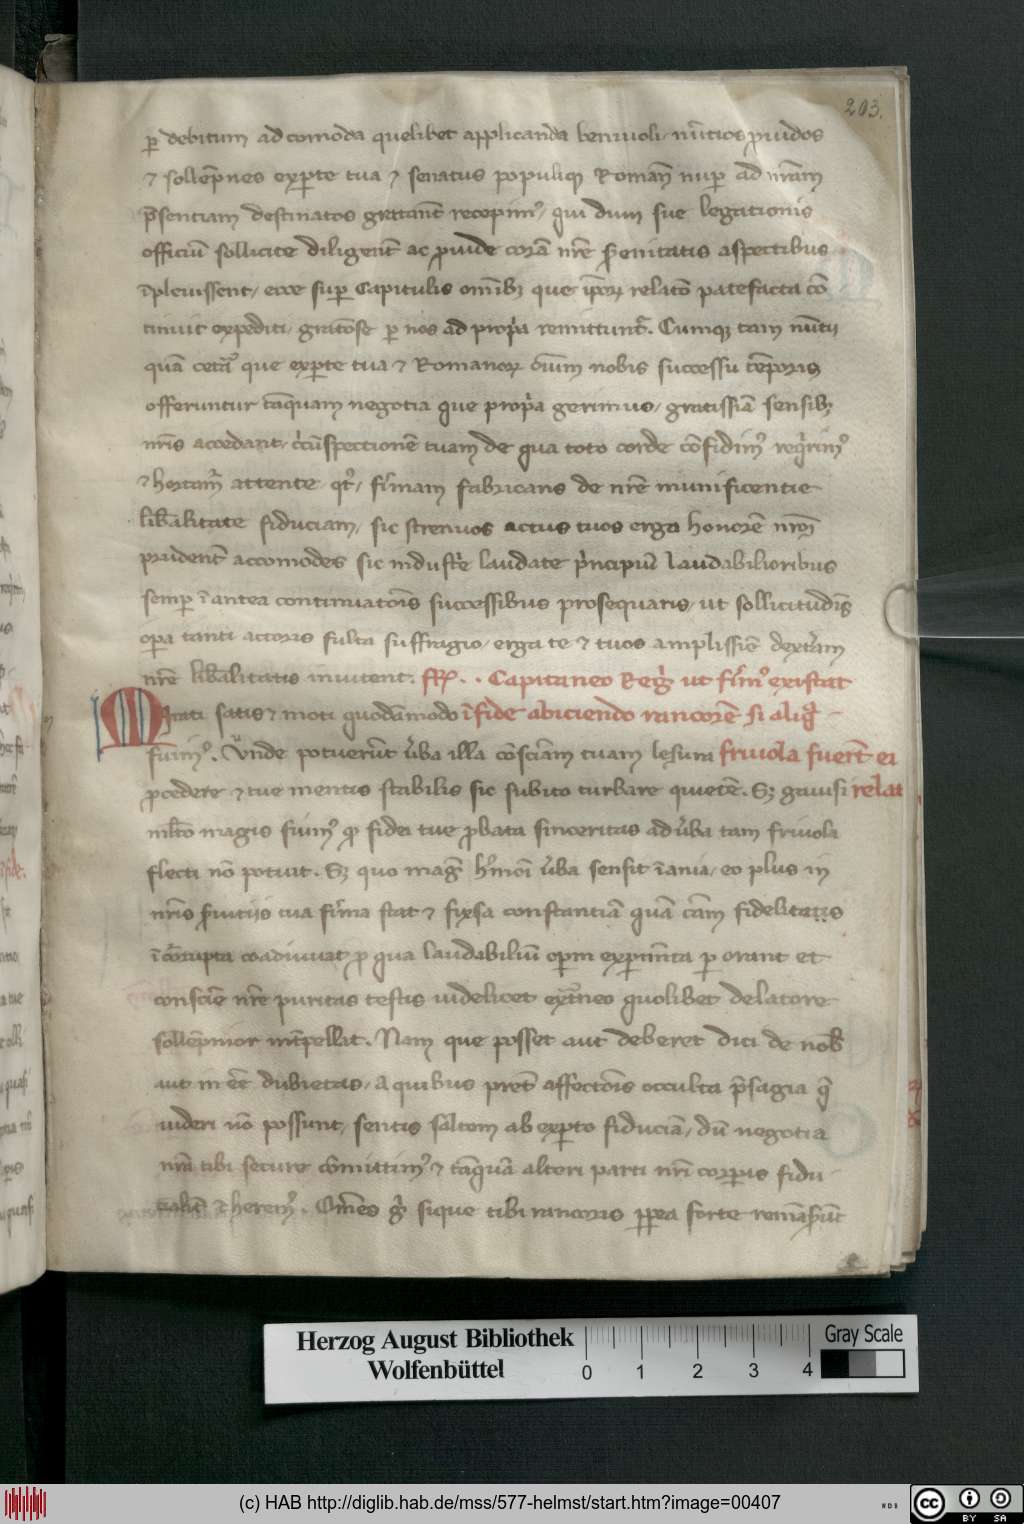 203.
ꝑ debitum ad comoda quelibet applicanda beniuoli nūtios ꝓuidos
⁊ sollēpnes exꝑte tua ⁊ senatus populiqꝫ Romāi nuꝑ ad nr̄am
p̄sentiam destinatos gratāt recepimꝰ, qui dum sue legationis
officiū sollicite diligent̄ ac ꝓuide corā nr̄e s̄enitatis aspectibus
īpleuissent, ecce suꝑ Capitulis om̄ibꝫ que ip̄oꝝ relatō patefacta cō
tinuit expediti, gratōse ꝑ nos ad prop̄a remittunt̄. Cumqꝫ tam nūtii
quā cetā que exꝑte tua ⁊ Romanoꝝ oīum nobis successu tēporis
offeruntur tāquam negotia que prop̄a gerimus, gratissīa sensibꝫ
nr̄is accedant, c̄cūspectionē tuam de qua toto corde cōfidimꝰ reqͥrimꝰ
⁊ hortam̄ attente qͣꝰ, firmam fabricans de nr̄e munificentie
lib̄alitate fiduciam, sic strenuos actus tuos erga honorē nr̄m
prudent̄ accomodes sic industͥe laudate pͥncipiū laudabilioribus
semꝑ ī antea continuatōis successibus prosequaris, ut sollicitudīs
oꝑa tanti actoris fulta suffragio, erga te ⁊ tuos amplissīe dextͣam
nr̄e lib̄alitatis inuitent. FR . . Capitaneo Reḡ ut firmꝰ existat
Mirati satis ⁊ moti quodāmodo ī fide abiciendo rancorē si aliq̄
fuimꝰ. Vnde potuerūt ūba illa cōsciam tuam lesura friuola fuerīt ei
ꝓcedere ⁊ tue mentis stabilis sic subito turbare quietē. Sꝫ gauisi relat
ml̄to magis fuimꝰ qꝫ fidei tue ꝓbata sinceritas ad ūba tam friuola
flecti nō potuit. Sꝫ quo magꝭ hꝰmoi ūba sensit īania, eo plus in
nr̄is s̄uitijs tua firma stat ⁊ fixsa constantiā quā tām fidelitatis
īcorrupta coadiuuat ꝓ qua laudabiliū oꝑm exꝑim̄ta ꝑ orant et
conscīe nr̄e puritas testis uidelicet extͣneo quolibet delatore
sollēpnior int̄pellat. Nam que posset aut deberet dici de nob̄
aut in eē dubietas, a quibus pret̄ affectōis occulta p̄sagia q̄
uideri nō possunt, sentis saltem ab exꝑto fiduciā, dū negotia
nr̄a tibi secure cōmittimꝰ ⁊ tāquā alteri parti nr̄i corꝑis fidu
cialit̄ ⁊ heremꝰ. Om̄es gͦ sique tibi rancoris ꝓpea forte remāsūt
Herzog August Bibliothek
Wolfenbüttel
0 1 2 3 4
Gray Scale
(c) HAB http://diglib.hab.de/mss/577-helmst/start.htm?image=00407
WDB
cc BY SA